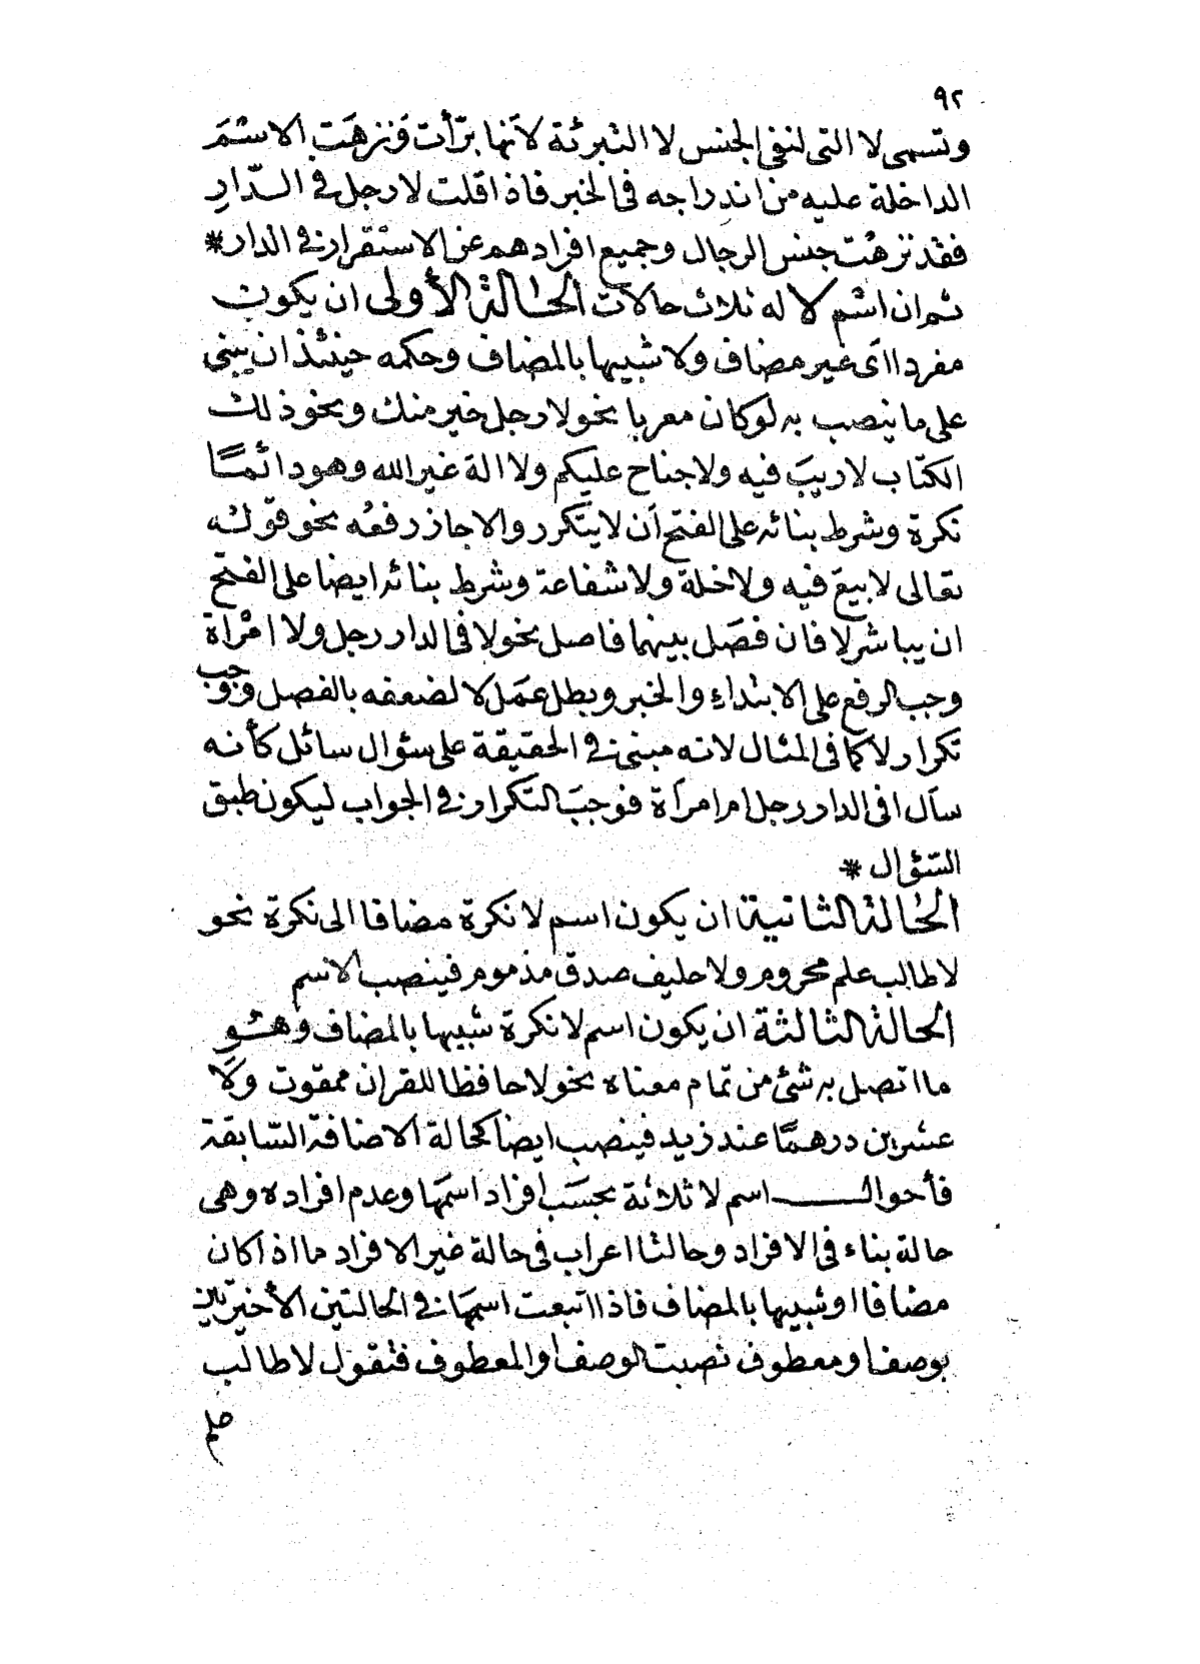 ٩٢
وتسمى لا التى لنفى الجنس لا التبرئة لأنها برّأت وَنزهَت الاسْمَ
الداخلة عليه من اندراجه فى الخبر فاذا قلت لا رجل فى الدّارِ
فقد نزهْت جنس الرجال وجميع افرادهم عن الاستقرار فى الدار *
ثم ان اسْم لا له ثلاث حالات الحالة الأولى ان يكون
مفردا اى غير مضاف ولا شبيها بالمضاف وحكمه حينئذ ان يبنى
على ما ينصب به لو كان معربا نحو لا رجل خير منك ونحو ذلك
الكتاب لا ريبَ فيه ولا جناح عليكم ولا الهَ غير الله وهو دائمًا
نكرة وشرط بنائه على الفتح اَن لا يتكرر والا جاز رفعُه نحو قوْله
تعالى لا بيعَ فيه ولا خلة ولا شفاعة وشرط بنائه ايضا على الفتح
ان يباشر لا فان فصَل بينهما فاصل نحو لا فى الدار رجل ولا امْرأة
وجب الرفع على الابتداءِ والخبر وبطل عمَل لا لضعفه بالفصل ووجب
تكرار لا كما فى المثال لانه مبنىّ فى الحقيقة على سؤال سائل كأنه
سأل افى الدار رجل ام امرأة فوجبَ التكرار فى الجواب ليكون طبق
السّؤال *
الحالة الثانية ان يكون اسم لا نكرة مضافا الى نكرة نحو
لا طالب علم محروم ولا حليف صدق مذموم فينصب الاسم
الحالة الثالثة ان يكون اسم لا نكرة شبيها بالمضاف وهْو
ما اتصل به شئ من تمام معناه نحو لا حافظا للقران ممقوت ولَا
عشرين درهمًا عند زيد فينصب ايضا كحالة الاضافة السّابقة
فأحوال اسم لا ثلاثة بحسَب افراد اسمَها وعدم افراده وهى
حالة بناء فى الافراد وحالتا اعراب فى حالة غير الافراد ما اذا كان
مضافا او شبيها بالمضاف فاذا اتبعت اسمَها فى الحالتين الأخيرَتين
بوصف او معطوف نصبت الوصف او المعطوف فتقول لا طالب
علم